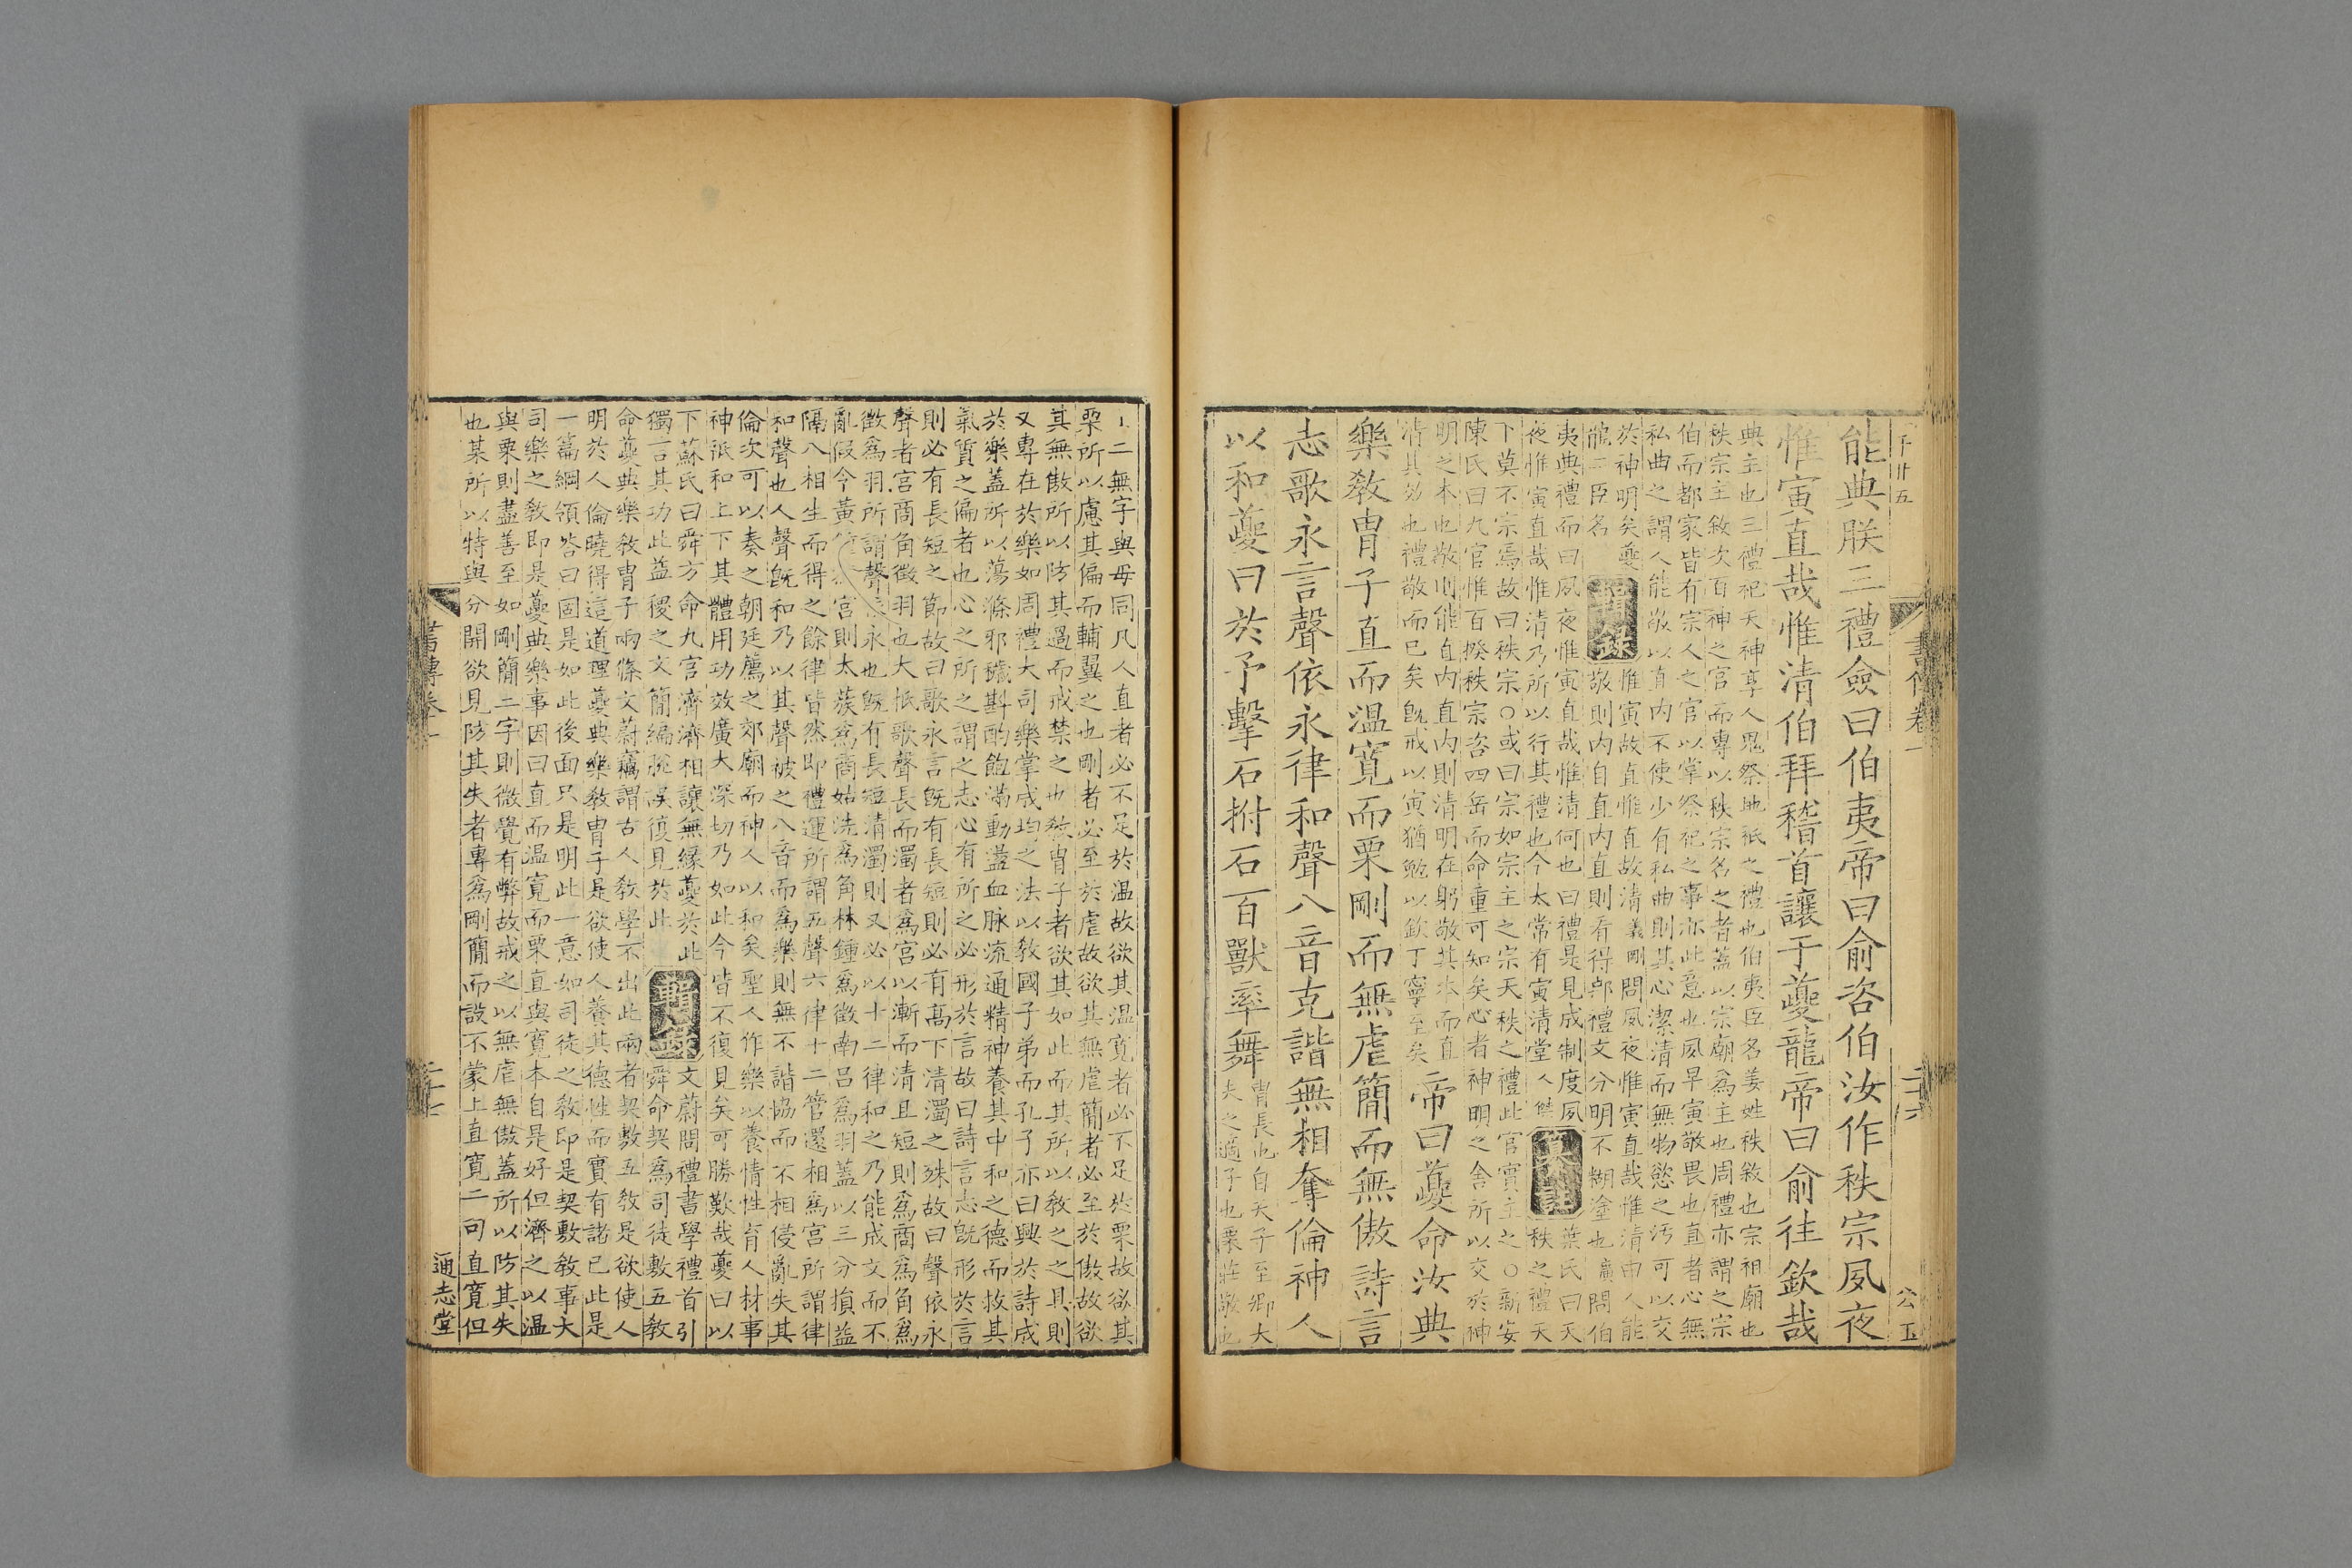 能典朕三禮僉曰伯夷帝曰俞咨伯汝作秩宗夙夜
惟寅直哉惟清伯拜稽首讓于夔龍帝曰俞往欽哉
典主也三禮祀天神享人鬼祭地祇之禮也伯夷臣名姜姓秩敘也宗祖廟也
秩宗主敘次百神之官而專以秩宗名之者蓋以宗廟為主也周禮亦謂之宗
伯而都家皆有宗人之官以掌祭祀之事亦此意也夙早寅敬畏也直者心無
私曲之謂人能敬以直内不使少有私曲則其心潔清而無物慾之汚可以交
於神明矣夔龍二臣名
語錄
惟寅故直惟直故清義剛問夙夜惟寅直哉惟清曰人能
敬則内自直内直則看得那禮文分明不糊塗也廣問伯
夷典禮而曰夙夜惟寅直哉惟清何也曰禮是見成制度夙
夜惟寅直哉惟清乃所以行其禮也今太常有寅清堂人傑
纂註
葉氏曰天
秩之禮天
下莫不宗焉故曰秩宗○或曰宗如宗主之宗天秩之禮此官實主之○新安
陳氏曰九官惟百揆秩宗咨四岳而命重可知矣心者神明之舍所以交於神
明之本也敬則能直内直内則清明在躬敬其本而直
清其効也禮敬而已矣旣戒以寅猶勉以欽丁寧至矣
帝曰夔命汝典
樂敎冑子直而温寛而栗剛而無虐簡而無傲詩言
志歌永言聲依永律和聲八音克諧無相奪倫神人
以和夔曰於予擊石拊石百獸率舞
冑長也自天子至卿大
夫之適子也栗莊敬也
二無字與毋同凡人直者必不足於温故欲其温寛者必不足於栗故欲其
栗所以慮其偏而輔翼之也剛者必至於虐故欲其無虐簡者必至於傲故欲
其無傲所以防其過而戒禁之也敎冑子者欲其如此而其所以敎之之具則
又專在於樂如周禮大司樂掌成均之法以敎國子弟而孔子亦曰興於詩成
於樂蓋所以蕩滌邪穢斟酌飽滿動盪血脉流通精神養其中和之德而救其
氣質之偏者也心之所之謂之志心有所之必形於言故曰詩言志旣形於言
則必有長短之節故曰歌永言旣有長短則必有高下清濁之殊故曰聲依永
聲者宮商角徵羽也大抵歌聲長而濁者爲宮以漸而清且短則爲商爲角爲
徵爲羽所謂聲依永也旣有長短清濁則又必以十二律和之乃能成文而不
亂假令黃鍾爲宮則太蔟爲商姑洗爲角林鍾爲徵南呂爲羽蓋以三分損益
隔八相生而得之餘律皆然即禮運所謂五聲六律十二管還相爲宮所謂律
和聲也人聲旣和乃以其聲被之八音而爲樂則無不諧協而不相侵亂失其
倫次可以奏之朝廷薦之郊廟而神人以和矣聖人作樂以養情性育人材事
神祇和上下其體用功效廣大深切乃如此今皆不復見矣可勝歎哉夔曰以
下蘇氏曰舜方命九官濟濟相讓無縁夔於此
獨言其功此益稷之文簡編脫誤復見於此
語錄
文蔚問禮書學禮首引
舜命契爲司徒敷五敎
命夔典樂敎冑子兩條文蔚竊謂古人敎學不出此兩者契敷五敎是欲使人
明於人倫曉得這道理夔典樂敎冑子是欲使人養其德性而實有諸已此是
一篇綱領答曰固是如此後面只是明此一意如司徒之敎即是契敷敎事大
司樂之敎即是夔典樂事因曰直而温寛而栗直與寛本自是好但濟之以温
與栗則盡善至如剛簡二字則微覺有弊故戒之以無虐無傲蓋所以防其失
也某所以特與分開欲見防其失者專爲剛簡而設不蒙上直寛二句直寛但
書傳卷一
二十七
通志堂